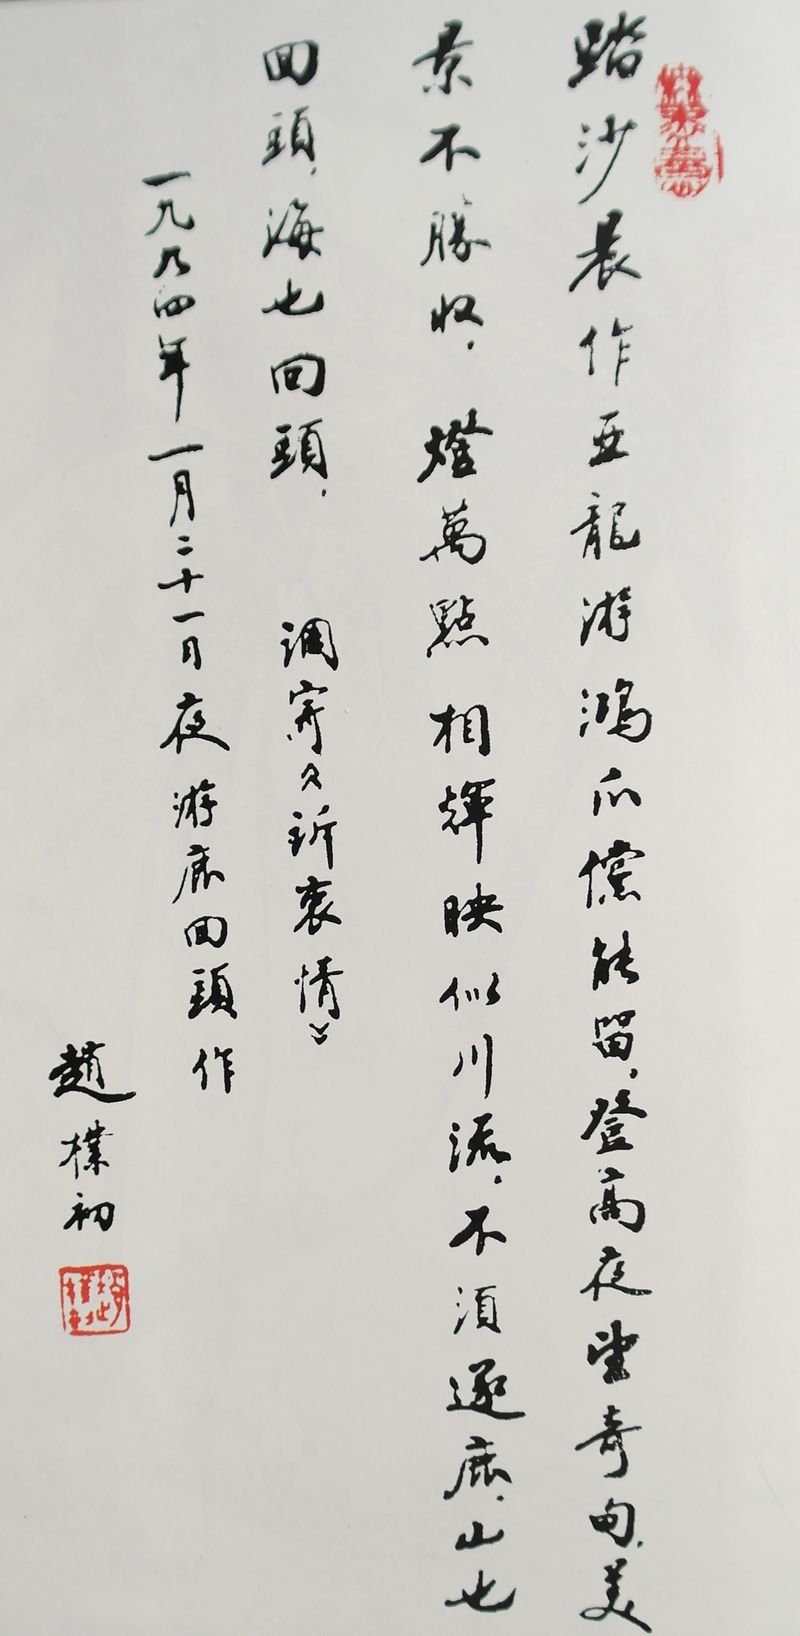 踏沙晨作亚龍游鴻爪儻能留，登高夜望奇甸，美
景不勝收，燈萬點相輝映似川流，不須逐鹿，山也
回頭，海也回頭，
調寄《訴衷情》
一九九四年一月二十一日夜游鹿回頭作
趙樸初